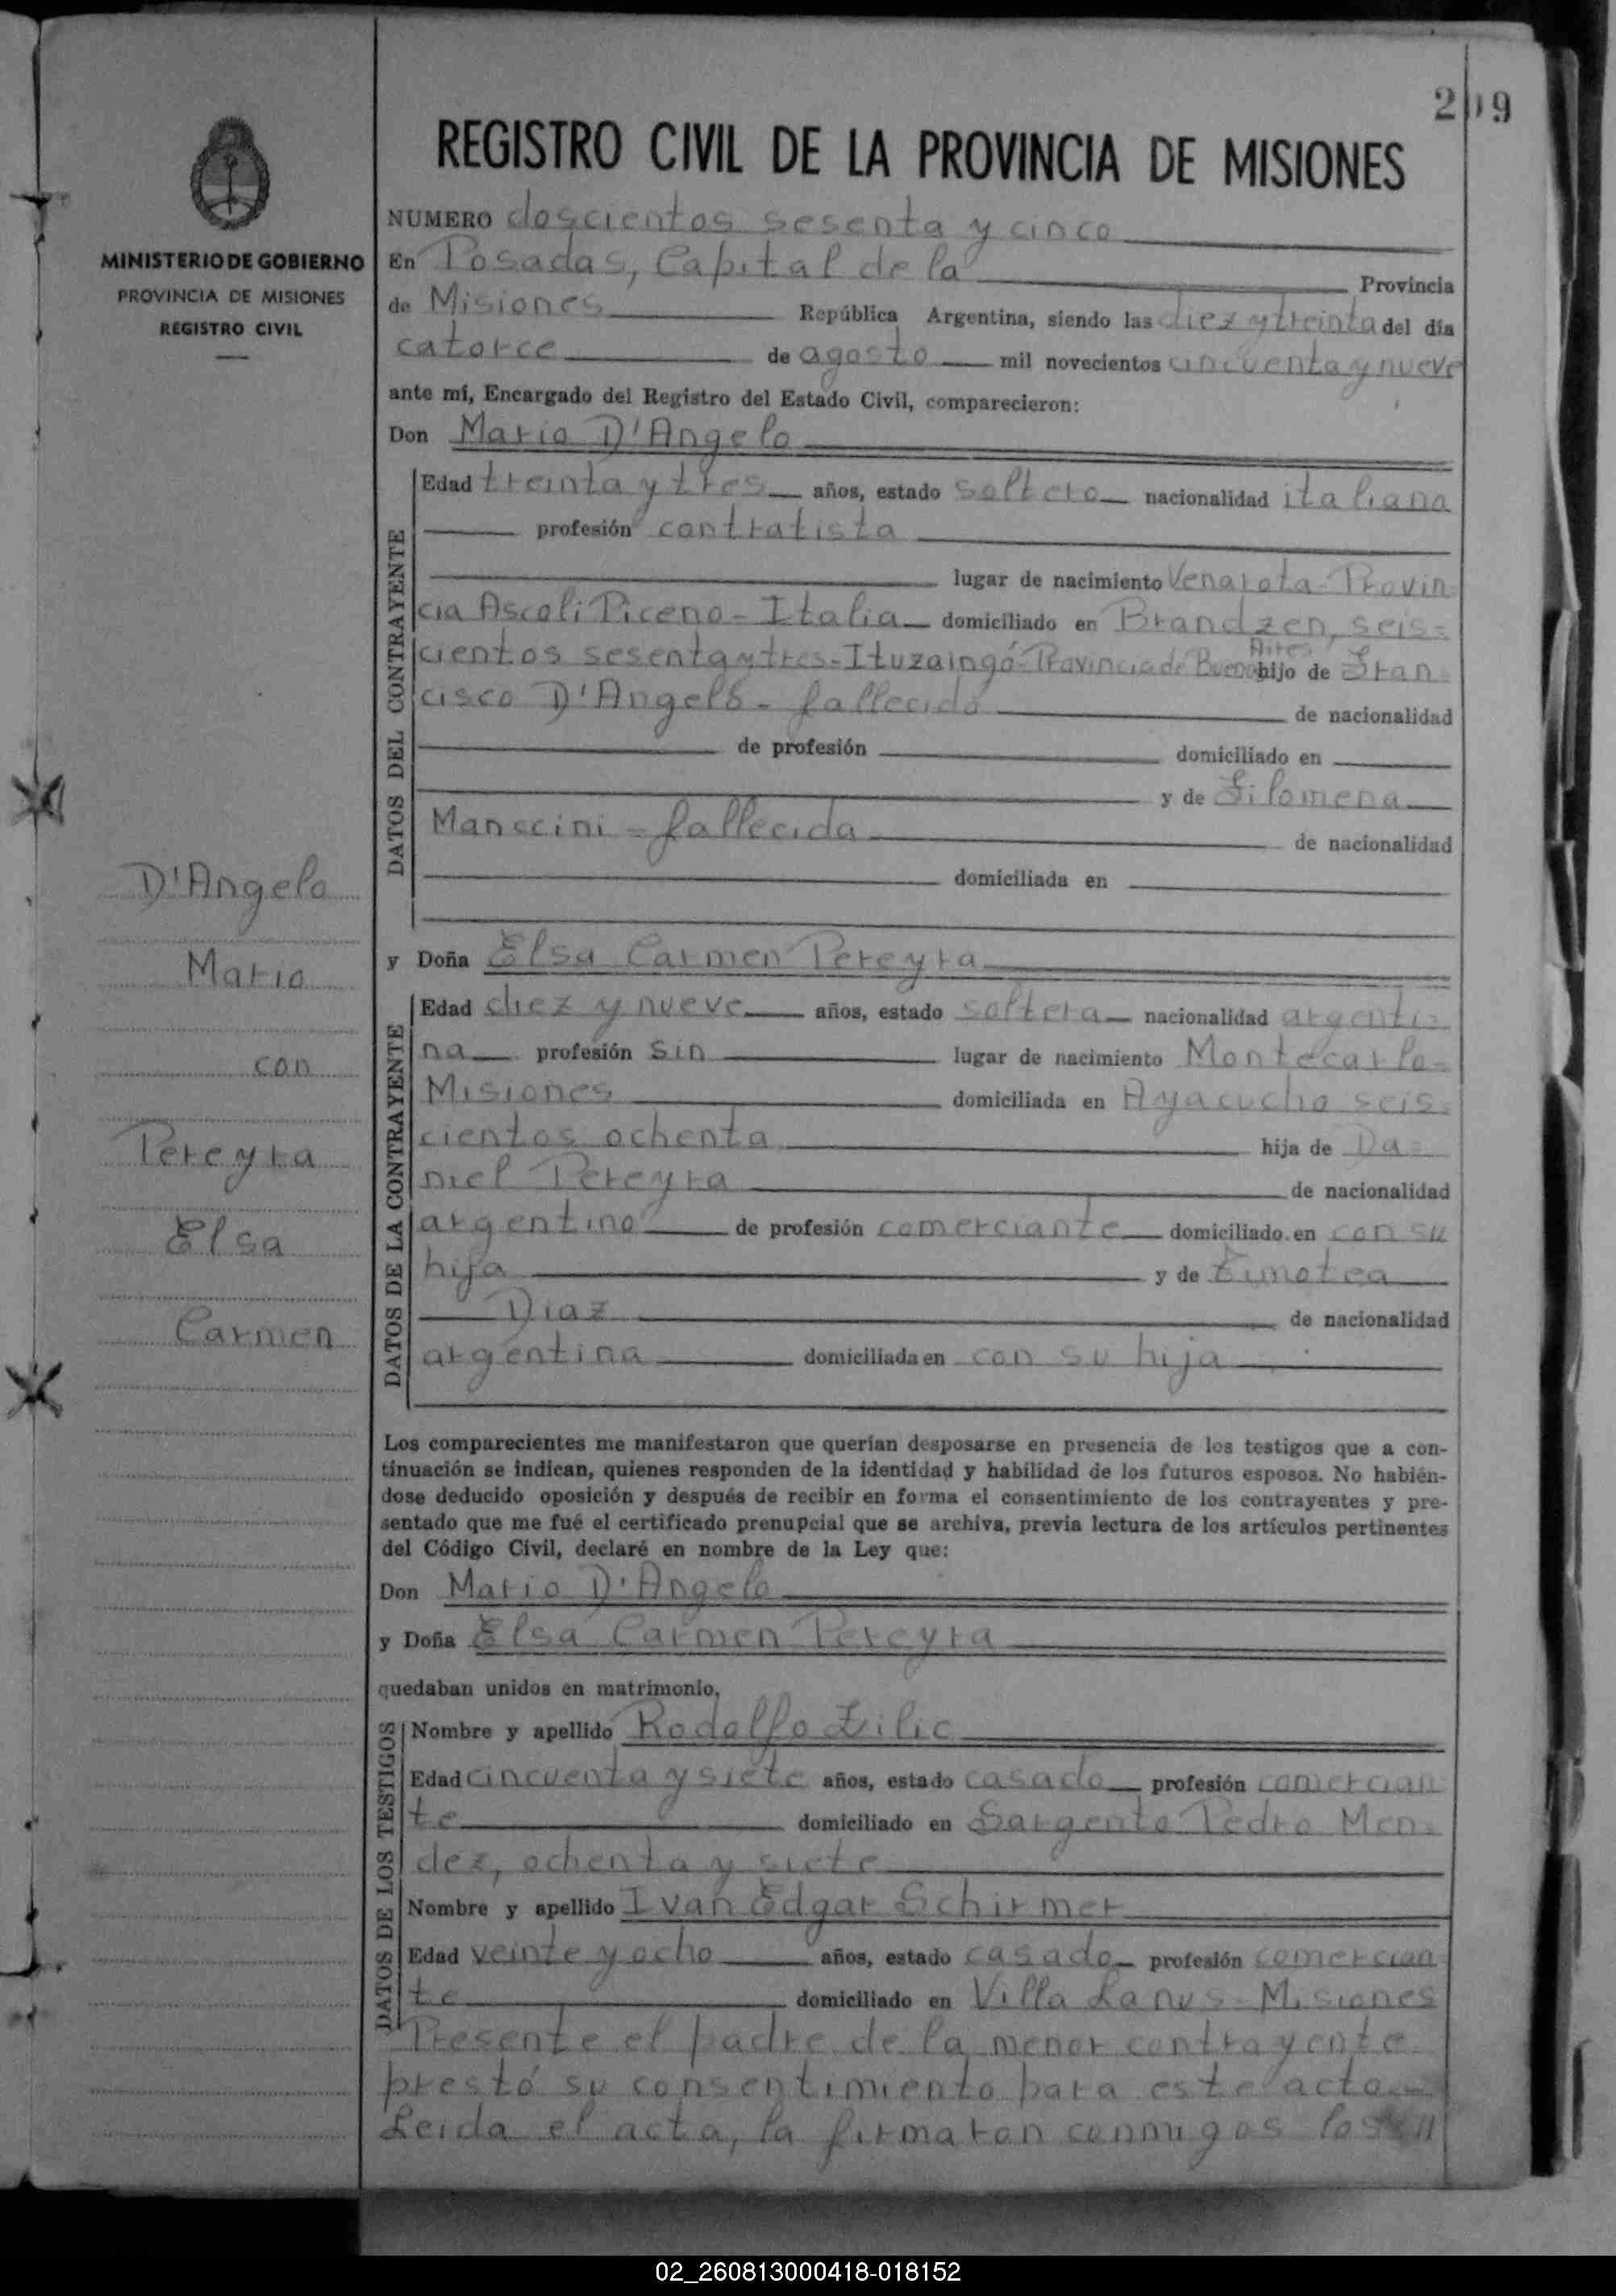 209
REGISTRO CIVIL DE LA PROVINCIA DE MISIONES
MINISTERIO DE GOBIERNO
PROVINCIA DE MISIONES
REGISTRO CIVIL
NUMERO doscientos sesenta y cinco
En Posadas, Capital de la Provincia
de Misiones República Argentina, siendo las diez y treinta del día
catorce de agosto mil novecientos cincuenta y nueve
ante mí, Encargado del Registro del Estado Civil, comparecieron:
Don Mario D'Angelo
DATOS DEL CONTRAYENTE
Edad treinta y tres años, estado soltero nacionalidad italiana
profesión contratista
lugar de nacimiento Venarota - Provin-
cia Ascoli Piceno - Italia domiciliado en Brandzen, seis=
cientos sesenta y tres - Ituzaingó - Provincia de Buenos Aires hijo de Fran-
cisco D'Angelo - fallecido de nacionalidad
de profesión domiciliado en
y de Filomena
Manccini = fallecida de nacionalidad
domiciliada en
D'Angelo
Mario
con
Pereyra
Elsa
Carmen
y Doña Elsa Carmen Pereyra
DATOS DE LA CONTRAYENTE
Edad diez y nueve años, estado soltera nacionalidad argenti=
na profesión sin lugar de nacimiento Montecarlo-
Misiones domiciliada en Ayacucho seis-
cientos ochenta hija de Da=
niel Pereyra de nacionalidad
argentino de profesión comerciante domiciliado en con su
hija y de Timotea
Diaz de nacionalidad
argentina domiciliada en con su hija
Los comparecientes me manifestaron que querían desposarse en presencia de los testigos que a con-
tinuación se indican, quienes responden de la identidad y habilidad de los futuros esposos. No habién-
dose deducido oposición y después de recibir en forma el consentimiento de los contrayentes y pre-
sentado que me fué el certificado prenupcial que se archiva, previa lectura de los artículos pertinentes
del Código Civil, declaré en nombre de la Ley que:
Don Mario D'Angelo
y Doña Elsa Carmen Pereyra
quedaban unidos en matrimonio.
DATOS DE LOS TESTIGOS
Nombre y apellido Rodolfo Zilic
Edad cincuenta y siete años, estado casado profesión comercian-
te domiciliado en Sargento Pedro Men=
dez, ochenta y siete
Nombre y apellido Ivan Edgar Schirmer
Edad veinte y ocho años, estado casado profesión comercian-
te domiciliado en Villa Lanus - Misiones
Presente el padre de la menor contrayente
prestó su consentimiento para este acto.=
Leida el acta, la firmaron conmigos los
02_260813000418-018152